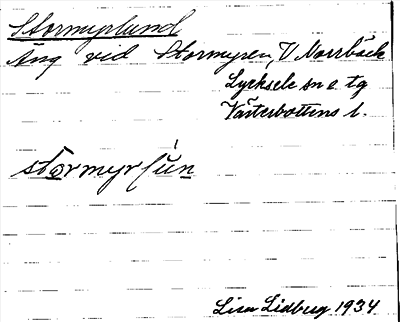 Stormyrlund
Äng vid Stormyren, V Norrbäck
Lycksele sn o. tg
Västerbottens l.
stormyrlún
Lisa Lidberg 1934